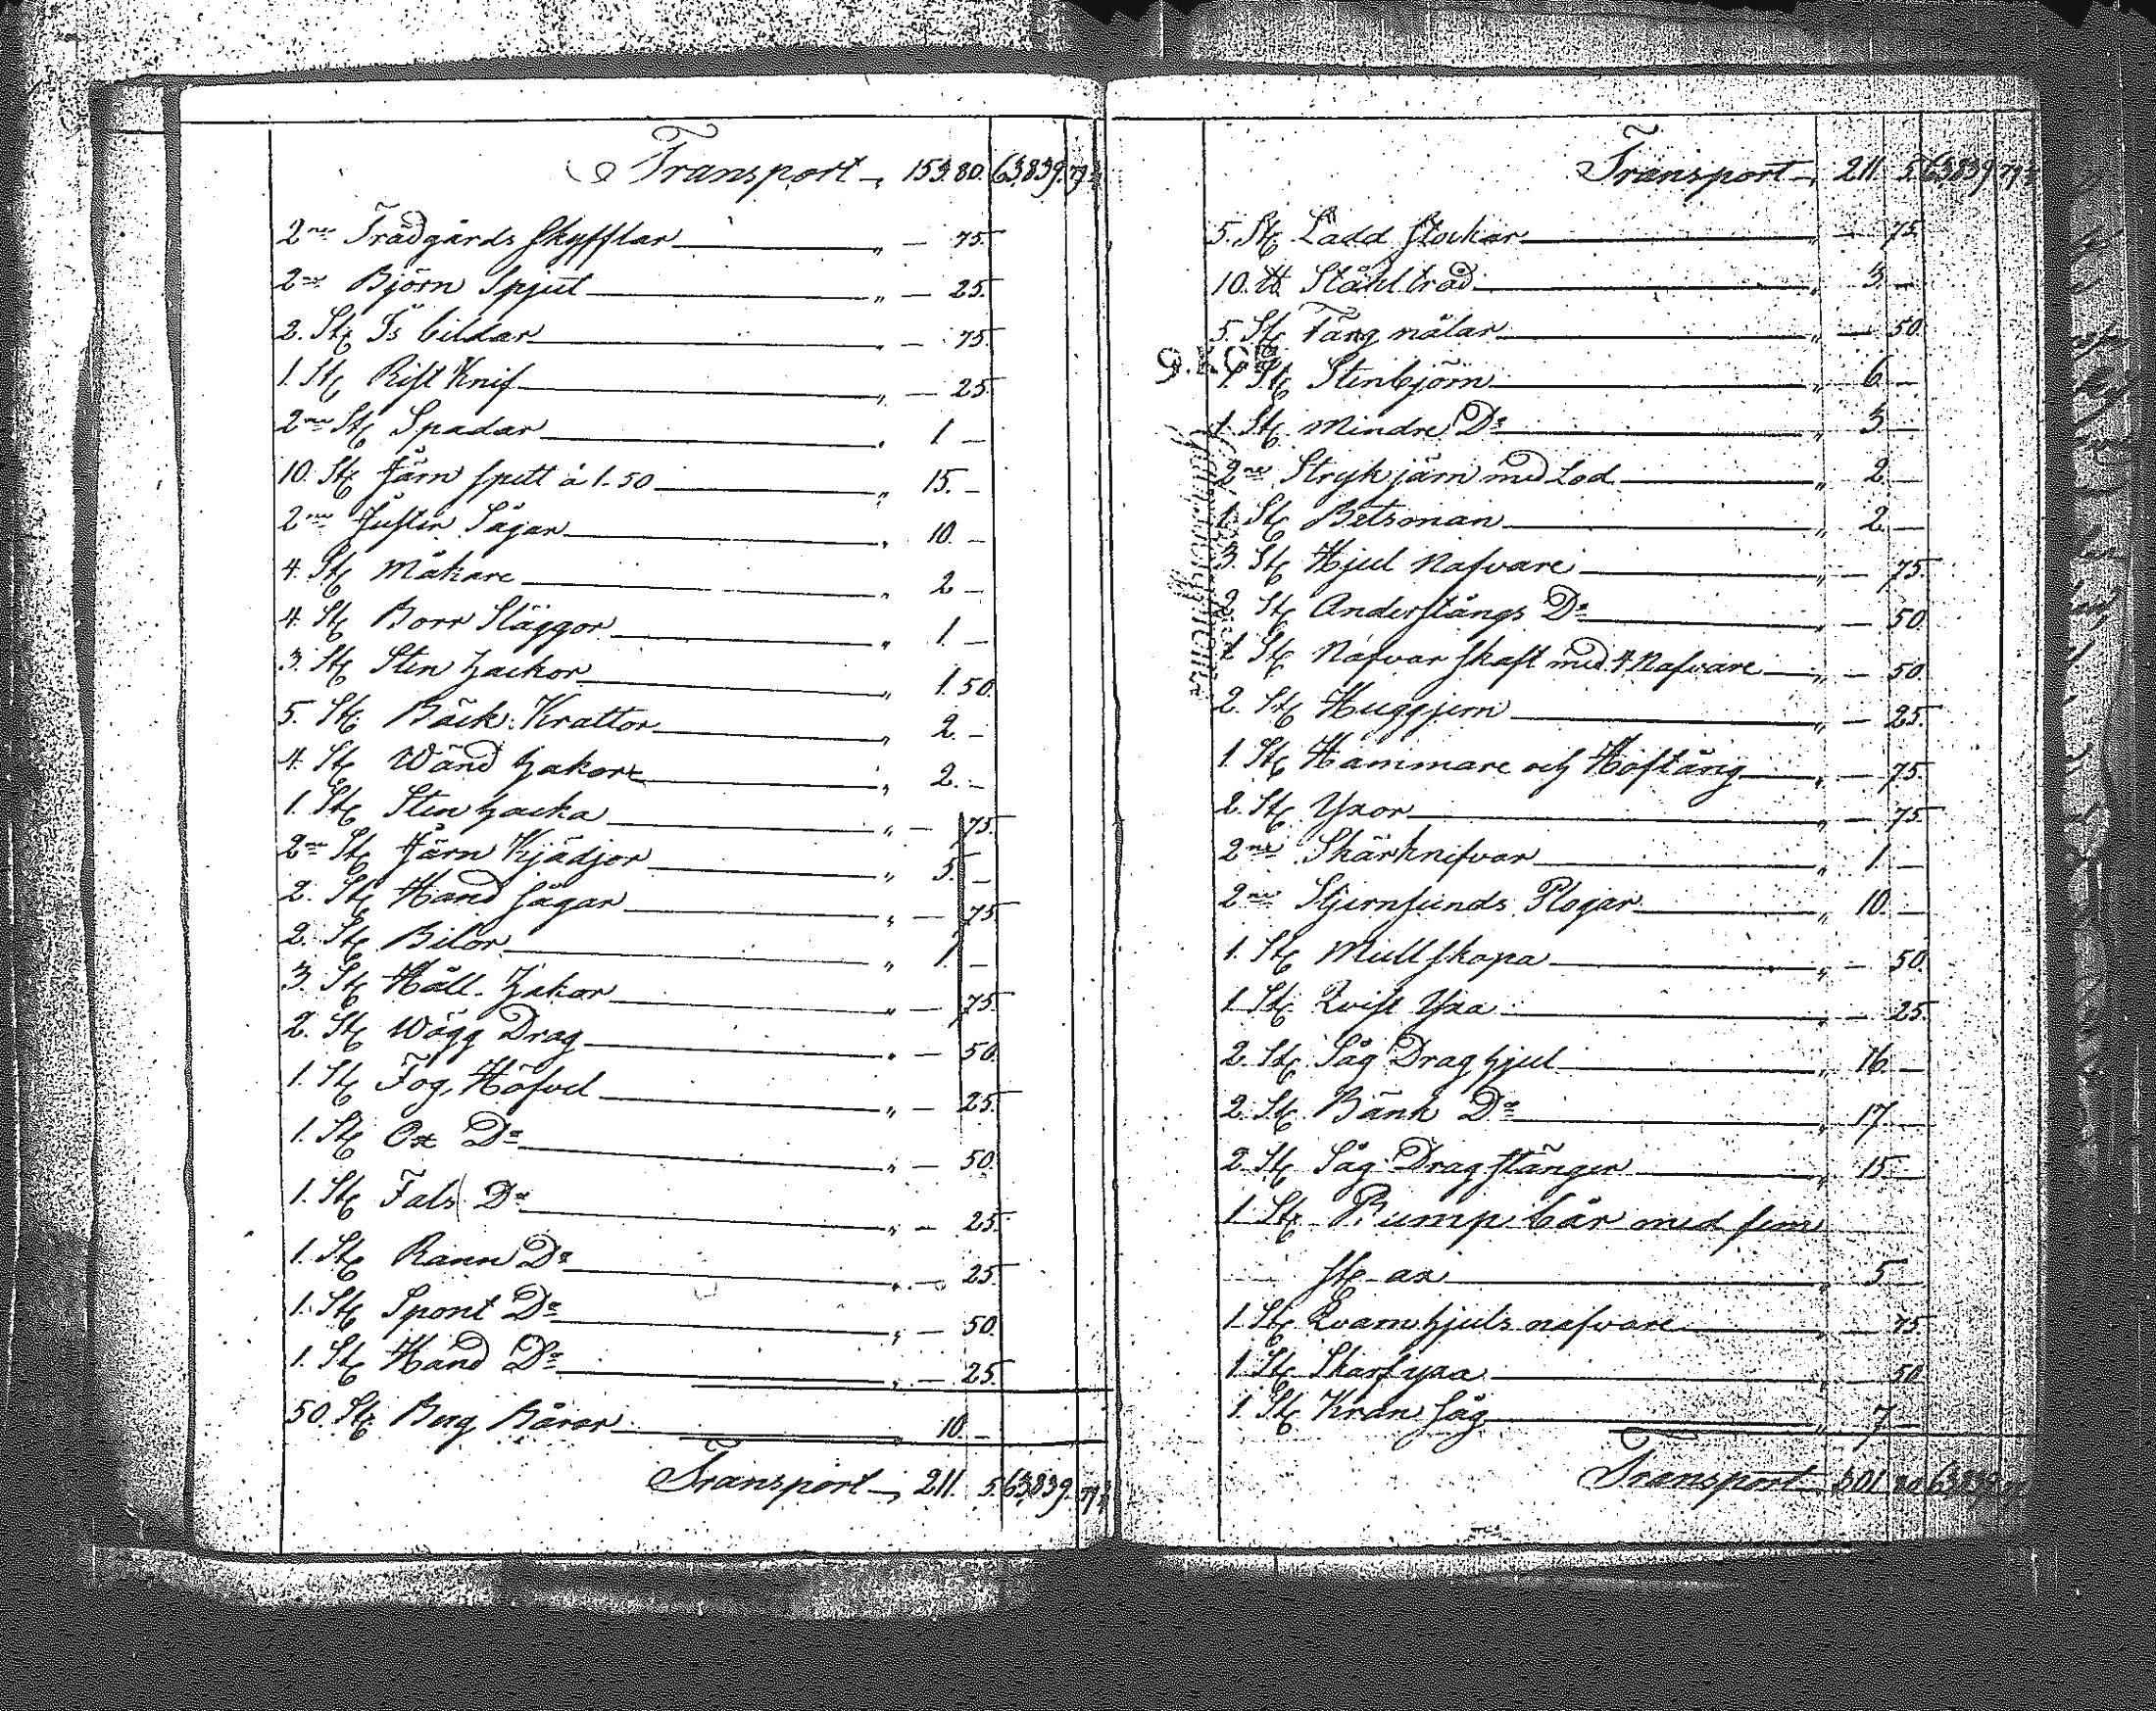 Transport —„ 153.80. 63,839.79
2ne Trädgårds skyfflar „ — 75.
2ne Björn Spjut „ — 25.
2. St. Is bildar „ — 75.
1. St. Rist Knif „ — 25.
2ne St. Spadar „ 1 —
10. St. Järn spett à 1.50 „ 15. —
2ne Juster Sågar „ 10. —
4. St. Måkare „ 2 —
4. St. Borr Släggor „ 1. —
3. St. Sten hackor „ 1. 50.
5. St. Bäck. Krattor „ 2. —
4. St. Wänd hakor „ 2. —
1. St. Sten hacka „ — 75.
2ne St. Järn Kjädjor „ 3. —
2. St. Hand sågar „ — 75.
2. St. Bilor „ 1. —
3. St. Håll. hakor „ — 75.
2. St. Wägg Drag „ — 50.
1. St. Fog Höfvel „ — 25.
1. St. Ox Do „ — 50.
1. St. Fals Do „ — 25.
1. St. Rann Do „ — 25.
1. St. Spont Do „ — 50.
1. St. Hand Do „ — 25.
50. St. Berg Bårar „ 10. —
Transport —„ 211. 5. 63,839. 79
Transport —„ 211. 5. 63,839 79
5. St. Ladd stockar „ — 75.
10. ℔. Ståhltråd „ 3. —
5. St. Färg nålar „ — 50.
1. St. Stenbjörn „ 6. —
1. St. Mindre Do „ 3. —
2ne Strykjärn med Lod „ 2. —
1. St. Betsonan „ 2. —
3. St. Hjul Nafvare „ — 75.
2 St. Anderstångs Do „ — 50.
1 St. Nafvar skaft med 4 Nafvare „ — 50.
2. St. Huggjern „ — 25.
1 St. Hammare och Höftång „ — 75.
2. St. Yxor „ — 75.
2ne Skärknifvar „ 1. —
2ne Stjernsunds Plogar „ 10. —
1. St. Mullskopa „ — 50.
1 St. Qvist Yxa „ — 25.
2. St. Såg Drag hjul „ 16. —
2. St. Bänk Do „ 17. —
2 St. Såg Dragstänger „ 15. —
1 St. Pump bår med fem
st. ax „ 5 —
1 St. Qvarnhjuls nafvare „ — 75
1 St. Skarfyxa „ — 50
1. St. Kran såg „ 7 —
Transport — 301 80 63839